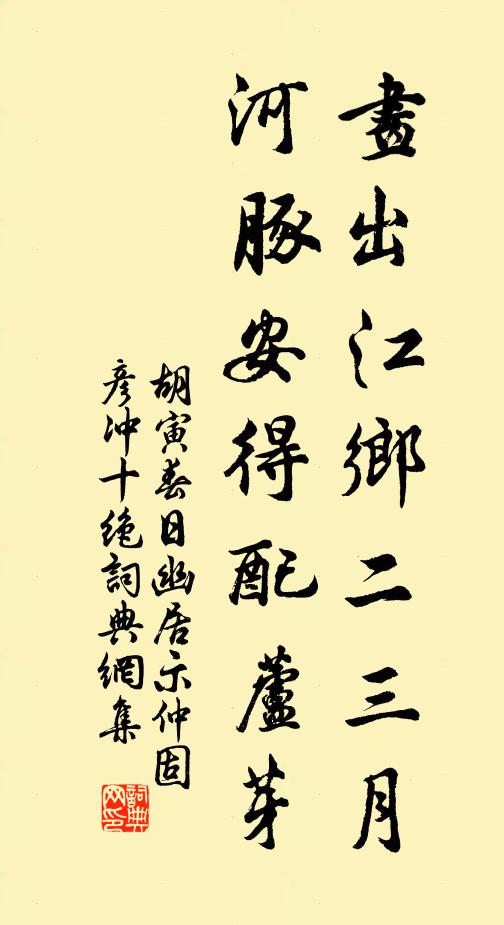 畫出江鄉二三月
河豚安得配蘆芽
胡寅春日幽居示仲固
彥沖十絕詞典網集
詞典網印